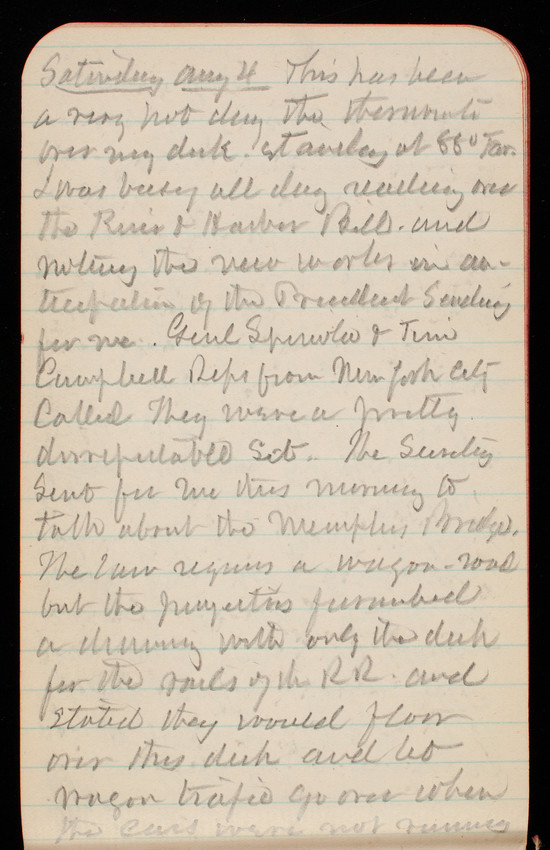 Saturday Aug 4 This has been
a very hot day the thermomete
over my desk. standing at 88° Far.
I was busy all day reading over
the River & Harbor Bill. and
noting the new works in an-
ticipation of the President Sending
for me. Genl Spinola & Tim
Campbell Reps from New York City
Called They were a pretty
disreputable Set. The Secretary
Sent for me this morning to
talk about the Memphis Bridge.
The law requires a wagon-road
but the projectors furnished
a drawing with only the deck
for the rails of the RR. and
Stated they would floor
over this deck and let
wagon trafic go over when
the cars were not running